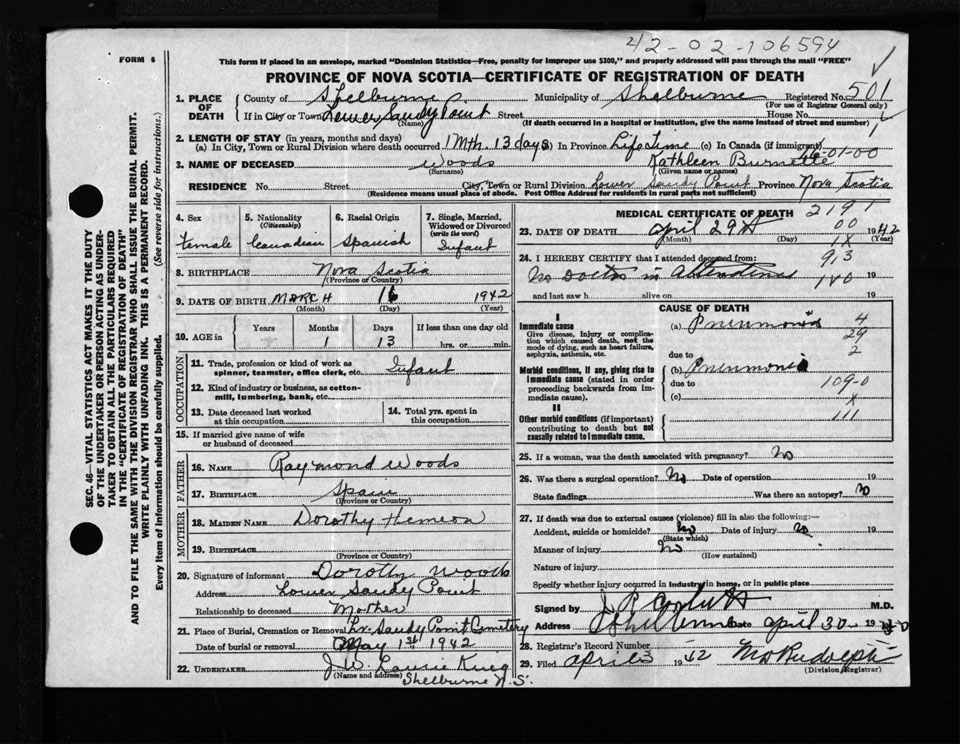 42-02-106594
FORM 6
This form if placed in an envelope, marked "Dominion Statistics—Free, penalty for improper use $300," and properly addressed will pass through the mail "FREE"
PROVINCE OF NOVA SCOTIA—CERTIFICATE OF REGISTRATION OF DEATH
SEC. 46—VITAL STATISTICS ACT MAKES IT THE DUTY
OF THE UNDERTAKER OR PERSON ACTING AS UNDER-
TAKER TO OBTAIN ALL THE PARTICULARS REQUIRED
IN THE "CERTIFICATE OF REGISTRATION OF DEATH"
AND TO FILE THE SAME WITH THE DIVISION REGISTRAR WHO SHALL ISSUE THE BURIAL PERMIT.
WRITE PLAINLY WITH UNFADING INK. THIS IS A PERMANENT RECORD.
Every item of information should be carefully supplied. (See reverse side for instructions.)
1. PLACE OF DEATH County of Shelburne Municipality of Shelburne Registered No. 501
(For use of Registrar General only)
If in City or Town Lower Sandy Point Street House No.
(Name) (If death occurred in a hospital or institution, give the name instead of street and number)
2. LENGTH OF STAY (in years, months and days)
(a) In City, Town or Rural Division where death occurred 1 Mth. 13 days (b) In Province Life Time (c) In Canada (if immigrant)
16-01-00
3. NAME OF DECEASED Woods Kathleen Burnette
(Surname) (Given name or names)
RESIDENCE No. Street City, Town or Rural Division Lower Sandy Point Province Nova Scotia
(Residence means usual place of abode. Post Office Address for residents in rural parts not sufficient)
4. Sex Female
5. Nationality (Citizenship) Canadian
6. Racial Origin Spanish
7. Single, Married, Widowed or Divorced (write the word) Infant
8. BIRTHPLACE Nova Scotia
(Province or Country)
9. DATE OF BIRTH MARCH 16 1942
(Month) (Day) (Year)
10. AGE in Years Months 1 Days 13 If less than one day old hrs. or min.
OCCUPATION
11. Trade, profession or kind of work as spinner, teamster, office clerk, etc. Infant
12. Kind of industry or business, as cotton-mill, lumbering, bank, etc.
13. Date deceased last worked at this occupation
14. Total yrs. spent in this occupation
15. If married give name of wife or husband of deceased
FATHER
16. NAME Raymond Woods
17. BIRTHPLACE Spain
(Province or Country)
MOTHER
18. MAIDEN NAME Dorothy Hemeon
19. BIRTHPLACE
(Province or Country)
20. Signature of informant Dorothy Woods
Address Lower Sandy Point
Relationship to deceased Mother
21. Place of Burial, Cremation or Removal Lr. Sandy Point Cemetery
Date of burial or removal May 1st 1942
22. UNDERTAKER J. W.
(Name and address) Shelburne N.S.
MEDICAL CERTIFICATE OF DEATH 2191
23. DATE OF DEATH April 29th 00 1942
(Month) (Day) 1X (Year)
24. I HEREBY CERTIFY that I attended deceased from: 913
No Doctor in Attendance 19
and last saw h alive on 19
CAUSE OF DEATH
I
Immediate cause
Give disease, injury or complication which caused death, not the mode of dying, such as heart failure, asphyxia, asthenia, etc.
(a) Pneumonia 4
29
due to 2
Morbid conditions, if any, giving rise to immediate cause (stated in order proceeding backwards from immediate cause).
(b) Pneumonia
due to 109-0
(c) X
II
Other morbid conditions (if important) contributing to death but not causally related to immediate cause.
111
25. If a woman, was the death associated with pregnancy? No
26. Was there a surgical operation? No Date of operation 19
State findings Was there an autopsy? No
27. If death was due to external causes (violence) fill in also the following:—
Accident, suicide or homicide? No Date of injury No 19
(State which)
Manner of injury No
(How sustained)
Nature of injury
Specify whether injury occurred in industry, in home, or in public place
Signed by M.D.
Address Shelburne Date April 30 19
28. Registrar's Record Number
29. Filed April 1942
(Division Registrar)